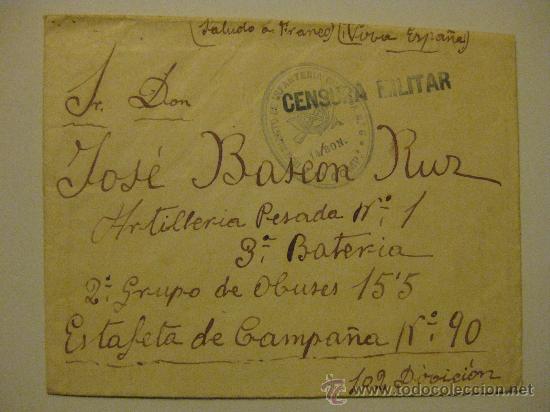 (Saludo á Franco) (¡Viva España)
CENSURA MILITAR
INFANTERIA
BON.
Sr. Don
José Bascon Ruz
Artilleria Pesada Nº 1
3ª Bateria
2º Grupo de Obuses 15'5
Estafeta de Campaña Nº 90
102 División
todocoleccion.net